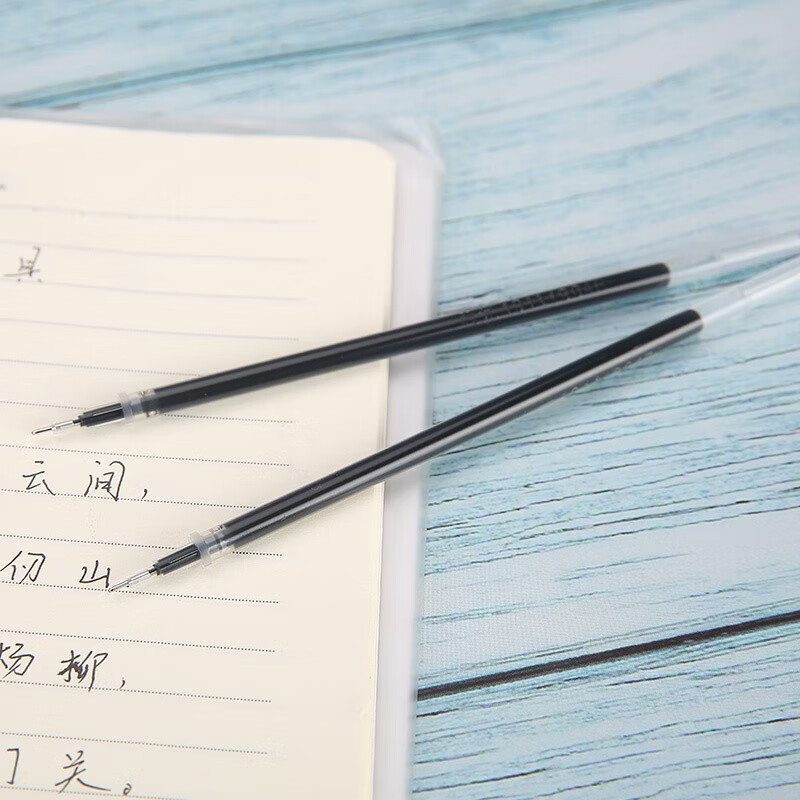 云间，
仞山
杨柳，
门关。